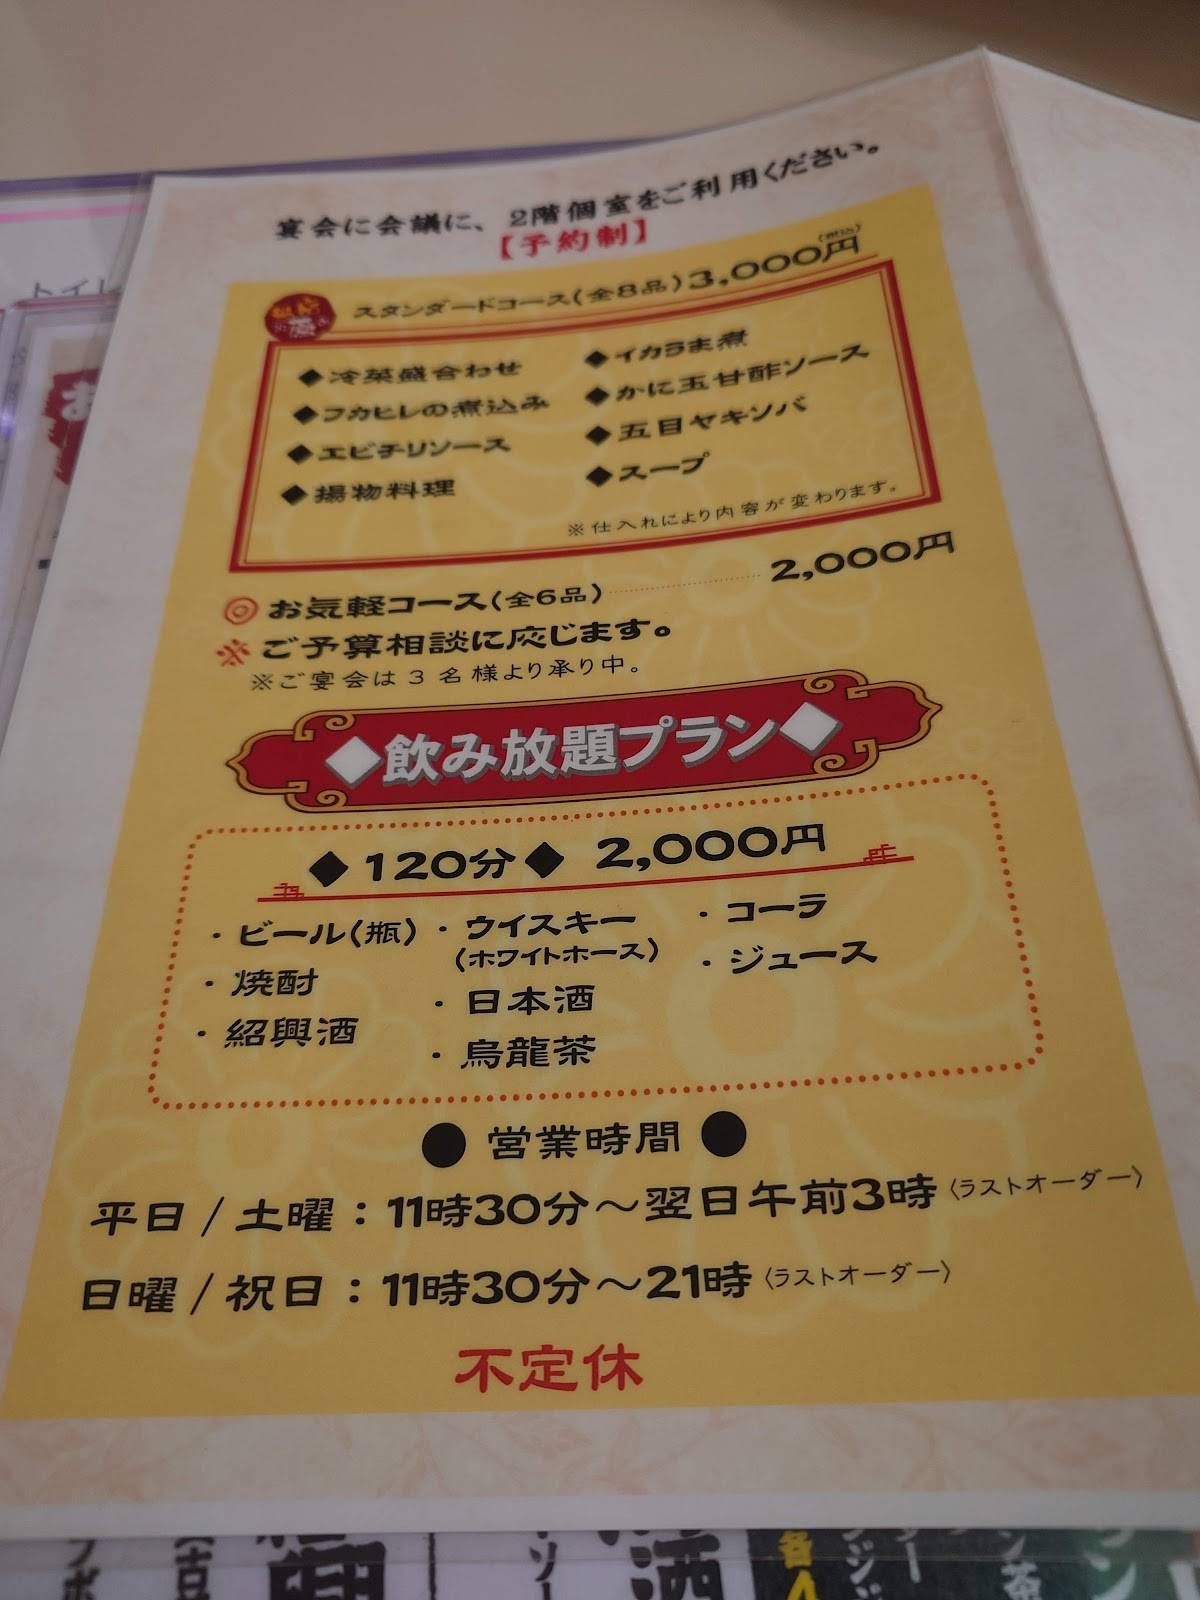 宴会に会議に、2階個室をご利用ください。
【予約制】
スタンダードコース(全8品)3,000円(税込)
◆冷菜盛合わせ
◆フカヒレの煮込み
◆エビチリソース
◆揚物料理
◆イカうま煮
◆かに玉甘酢ソース
◆五目ヤキソバ
◆スープ
※仕入れにより内容が変わります。
◎お気軽コース(全6品) 2,000円
※ご予算相談に応じます。
※ご宴会は3名様より承り中。
◆飲み放題プラン◆
◆120分◆ 2,000円
・ビール(瓶)
・焼酎
・紹興酒
・ウイスキー
(ホワイトホース)
・日本酒
・烏龍茶
・コーラ
・ジュース
●営業時間●
平日/土曜:11時30分〜翌日午前3時〈ラストオーダー〉
日曜/祝日:11時30分〜21時〈ラストオーダー〉
不定休
トイレ